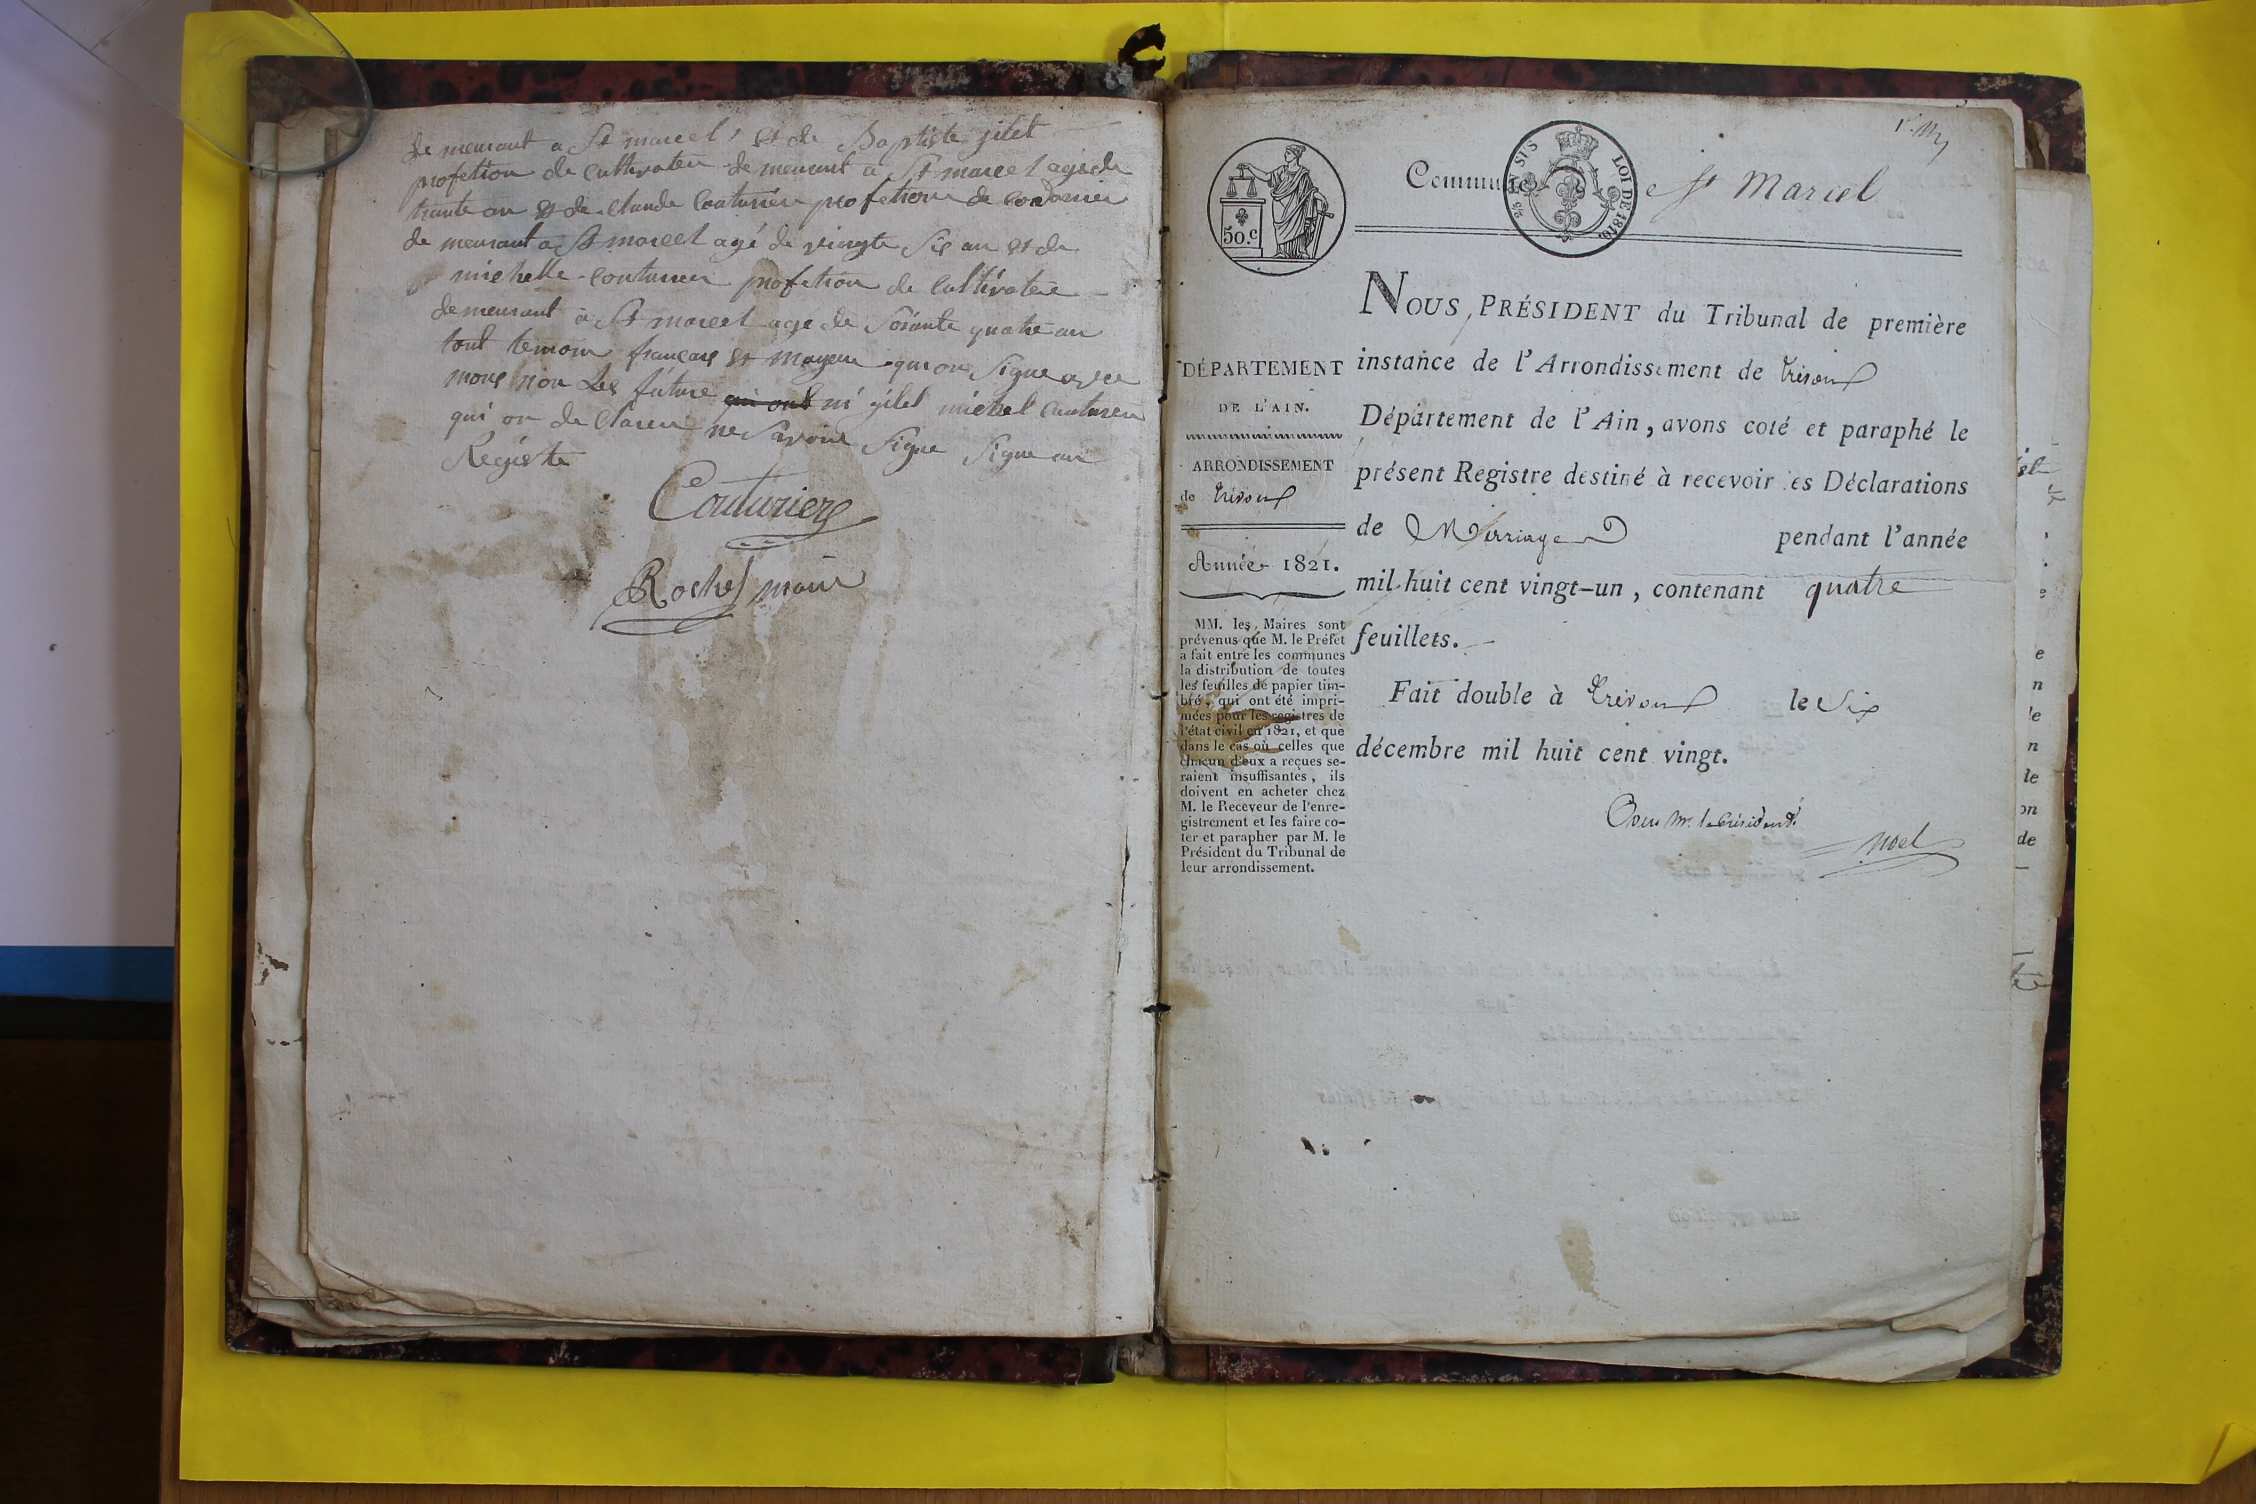 de meurant a St marcel et de Baptiste gilet
profetion de Cultivateu de meurant a St marcel age de
trante an et de Claude Couturier profetion de Cordonier
de meurant a St marcel agé de vingte Six an et de
michelle couturier profetion de Cultivateu
demeurant a St marcel age de Soisante quatre an
tout temoin français et mageur qui on Signe avec
mous non Les future qui ont ni gilet michel Couturier
qui on de Clarer ne Savoir Signe Signe au
Régistre
Couturier
Rochet maire
50.c
EN SUS
LOI DE 1816.
Commune de St Marcel
DÉPARTEMENT
DE L'AIN.
ARRONDISSEMENT
de Trévoux
Année 1821.
MM. les Maires sont
prévenus que M. le Préfet
a fait entre les communes
la distribution de toutes
les feuilles de papier tim-
bré, qui ont été impri-
mées pour les registres de
l'état civil en 1821, et que
dans le cas où celles que
chacun d'eux a reçues se-
raient insuffisantes, ils
doivent en acheter chez
M. le Receveur de l'enre-
gistrement et les faire co-
ter et parapher par M. le
Président du Tribunal de
leur arrondissement.
NOUS, PRÉSIDENT du Tribunal de première
instance de l'Arrondissement de Trévoux
Département de l'Ain, avons coté et paraphé le
présent Registre destiné à recevoir les Déclarations
de Mariage pendant l'année
mil huit cent vingt-un, contenant quatre
feuillets.
Fait double à Trévoux le Six
décembre mil huit cent vingt.
Pour Mr. le Président.
Noel